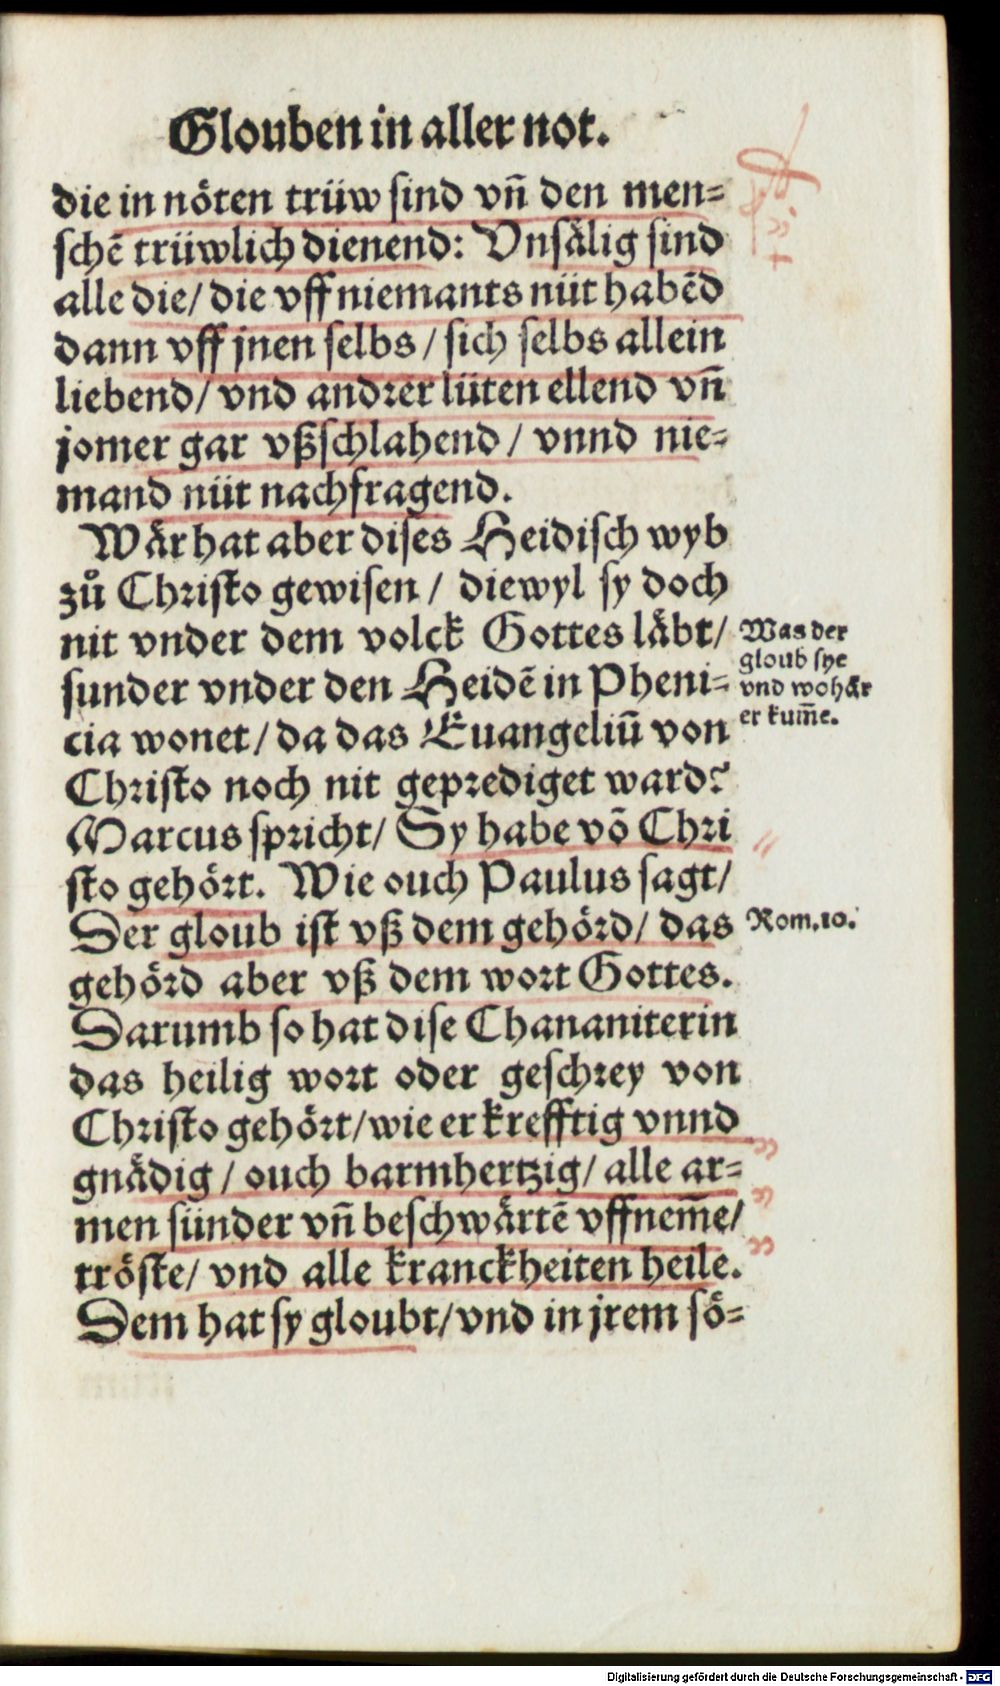 Glouben in aller not.
die in nöten trüw sind vñ den men⸗
schẽ trüwlich dienend: Vnsälig sind
alle die/ die vff niemants nüt habẽd
dann vff jnen selbs/ sich selbs allein
liebend/ vnd andrer lüten ellend vñ
jomer gar vßschlahend/ vnnd nie⸗
mand nüt nachfragend.
Wär hat aber dises Heidisch wyb
zů Christo gewisen/ diewyl sy doch
nit vnder dem volck Gottes läbt/
sunder vnder den Heidẽ in Pheni⸗
cia wonet/ da das Euangeliũ von
Christo noch nit geprediget ward?
Marcus spricht/ Sy habe võ Chri
sto gehört. Wie ouch Paulus sagt/
Der gloub ist vß dem gehörd/ das
gehörd aber vß dem wort Gottes.
Darumb so hat dise Chananiterin
das heilig wort oder geschrey von
Christo gehört/ wie er krefftig vnnd
gnädig/ ouch barmhertzig/ alle ar⸗
men sünder vñ beschwärtẽ vffnem̃e/
tröste/ vnd alle kranckheiten heile.
Dem hat sy gloubt/ vnd in jrem sö⸗
Was der
gloub sye
vnd wohär
er kum̃e.
Rom.10.
Digitalisierung gefördert durch die Deutsche Forschungsgemeinschaft - DFG